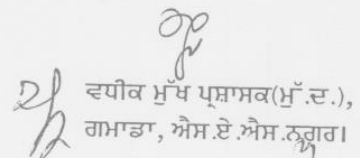 ਵਧੀਕ ਮੁੱਖ ਪ੍ਰਸ਼ਾਸਕ(ਮੁੱ.ਦ.),
ਗਮਾਡਾ, ਐਸ.ਏ.ਐਸ.ਨਗਰ।